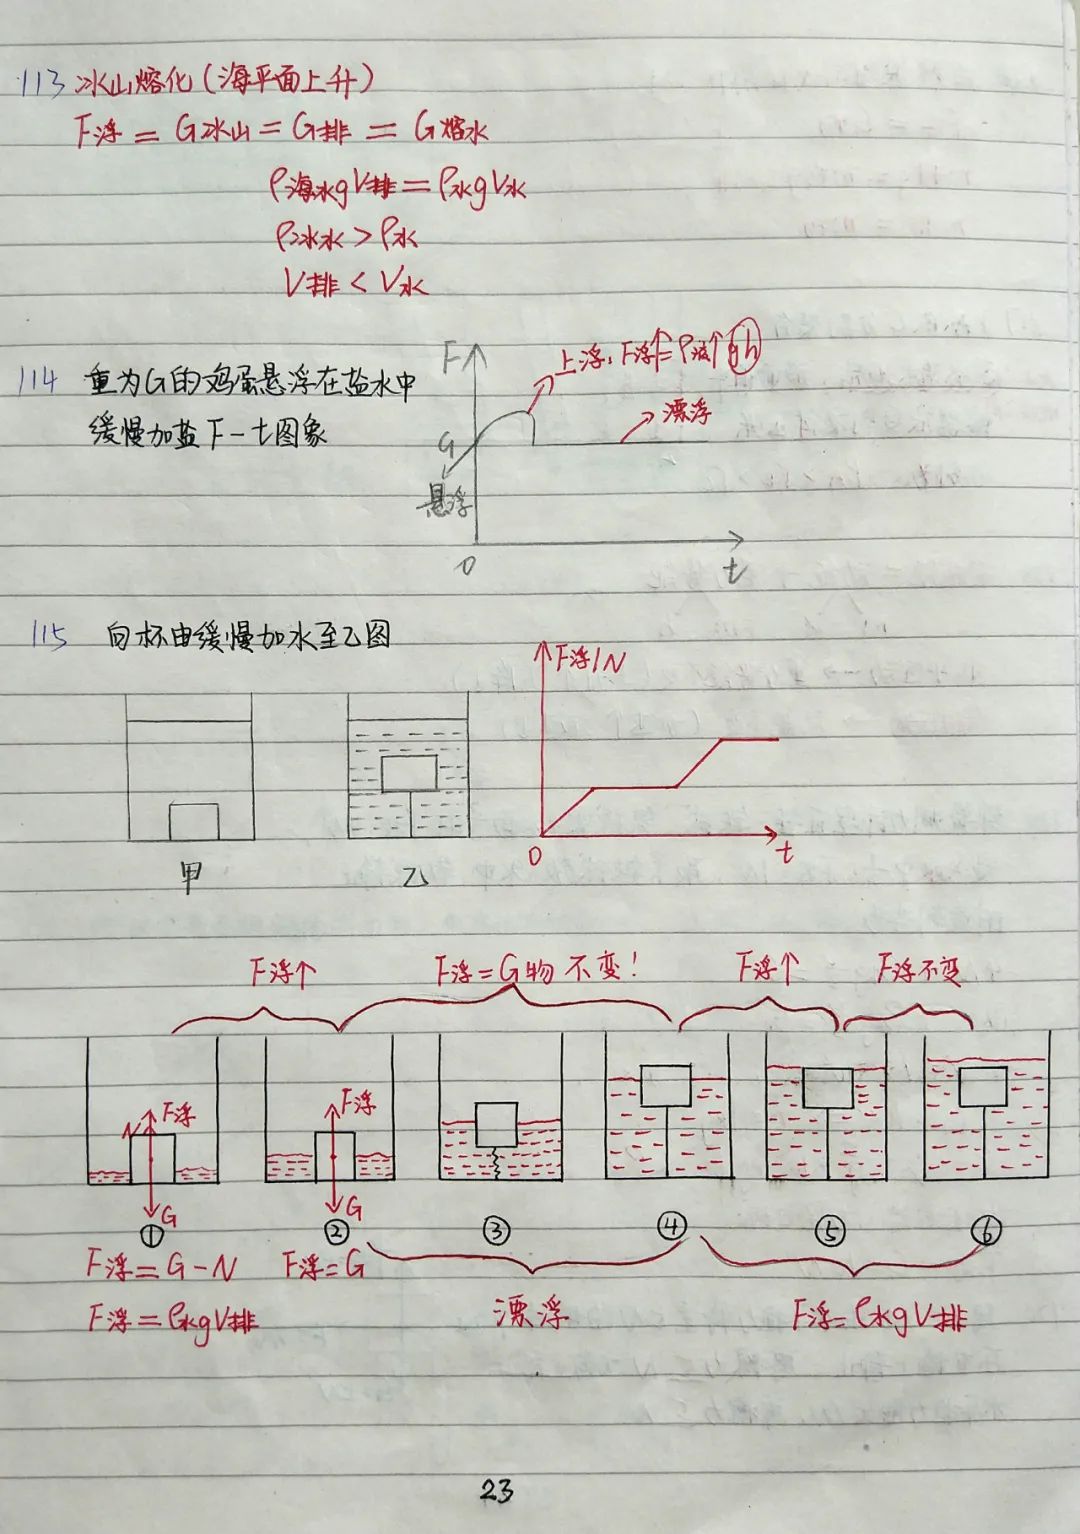 113 冰山熔化(海平面上升)
F浮 = G冰山 = G排 = G熔水
ρ海水gV排 = ρ水gV水
ρ冰水 > ρ水
V排 < V水
114 重为G的鸡蛋悬浮在盐水中
缓慢加盐 F-t图象
F
上浮, F浮↑=ρ液↑gh
漂浮
G
悬浮
0
t
115 向杯由缓慢加水至乙图
F浮/N
0
t
甲
乙
F浮↑
F浮=G物 不变!
F浮↑
F浮不变
N
F浮
F浮
G
G
① ② ③ ④ ⑤ ⑥
F浮=G-N
F浮=G
F浮=ρ水gV排
漂浮
F浮=ρ水gV排
23